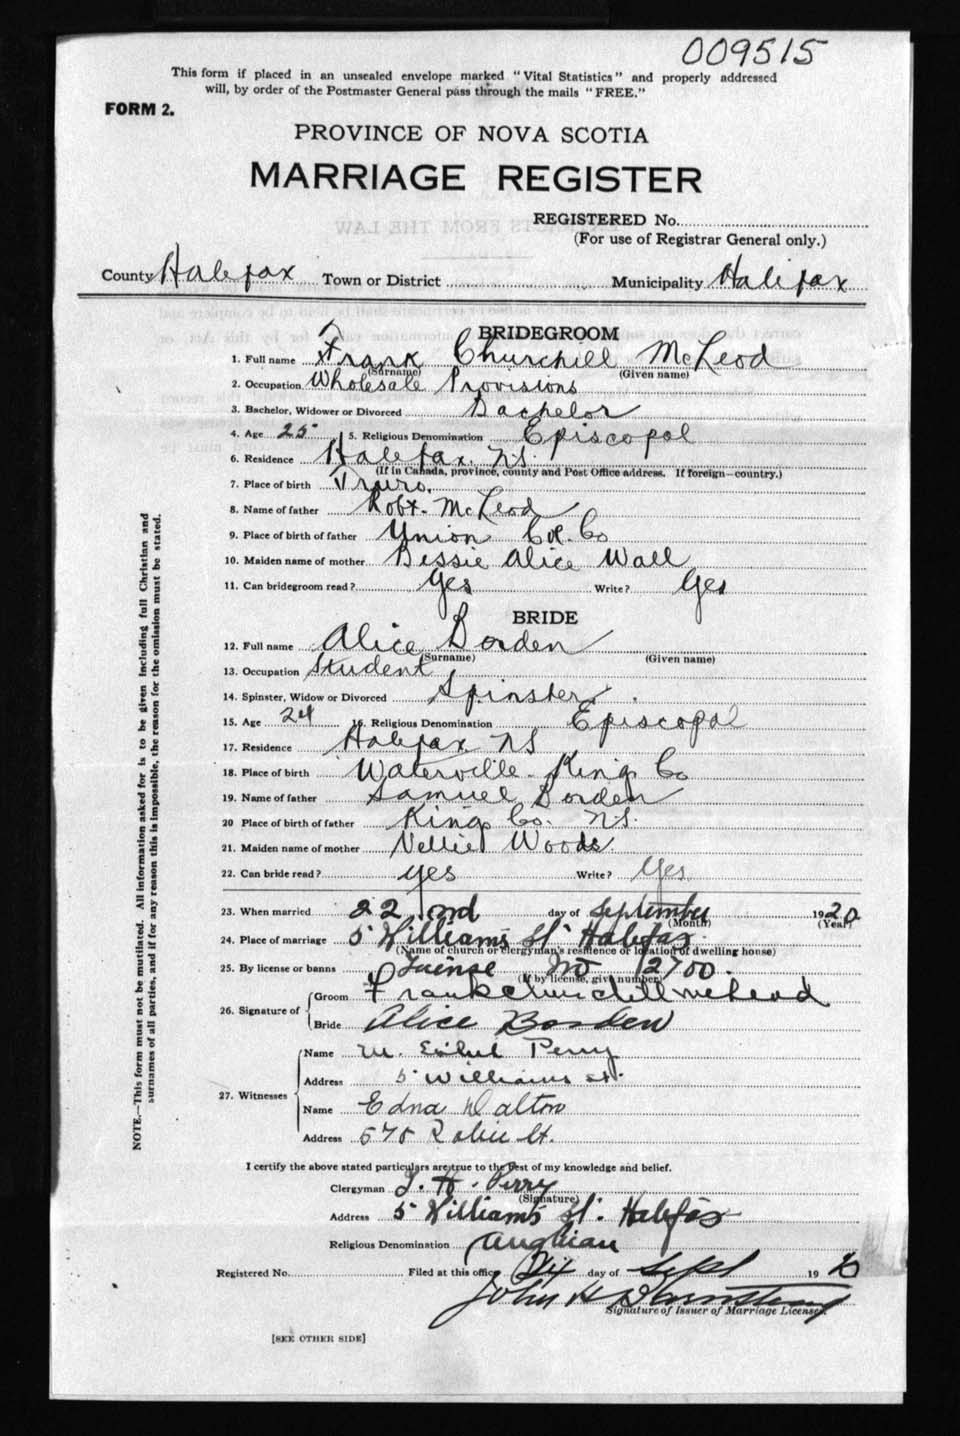 009515
This form if placed in an unsealed envelope marked "Vital Statistics" and properly addressed
will, by order of the Postmaster General pass through the mails "FREE."
FORM 2.
PROVINCE OF NOVA SCOTIA
MARRIAGE REGISTER
REGISTERED No.
(For use of Registrar General only.)
County Halifax Town or District Municipality Halifax
BRIDEGROOM
1. Full name Frank Churchill McLeod
(Surname) (Given name)
2. Occupation Wholesale Provisions
3. Bachelor, Widower or Divorced Bachelor
4. Age 25 5. Religious Denomination Episcopal
6. Residence Halifax. N.S.
(If in Canada, province, county and Post Office address. If foreign—country.)
7. Place of birth Truro.
8. Name of father Robt. McLeod
9. Place of birth of father Union Col. Co
10. Maiden name of mother Bessie Alice Wall
11. Can bridegroom read? Yes Write? Yes
BRIDE
12. Full name Alice Borden
(Surname) (Given name)
13. Occupation Student
14. Spinster, Widow or Divorced Spinster
15. Age 24 16. Religious Denomination Episcopal
17. Residence Halifax NS
18. Place of birth Waterville. Kings Co
19. Name of father Samuel Borden
20 Place of birth of father Kings Co. N.S.
21. Maiden name of mother Nellie Woods
22. Can bride read? yes Write? Yes
23. When married 22nd day of September 1920
(Month) (Year)
24. Place of marriage 5 Williams St. Halifax
(Name of church or clergyman's residence or location of dwelling house)
25. By license or banns License No 12700.
(If by license, give number)
26. Signature of
Groom Frank Churchill McLeod
Bride Alice Borden
27. Witnesses
Name M. Ethel Perry
Address 5 Williams St.
Name Edna Walton
Address 575 Robie St.
I certify the above stated particulars are true to the best of my knowledge and belief.
Clergyman H. Perry
(Signature)
Address 5 Williams St. Halifax
Religious Denomination Anglican
Registered No. Filed at this office day of Sept 1920
John H
Signature of Issuer of Marriage Licenses.
[SEE OTHER SIDE]
NOTE.—This form must not be mutilated. All information asked for is to be given including full Christian and
surnames of all parties, and if for any reason this is impossible, the reason for the omission must be stated.